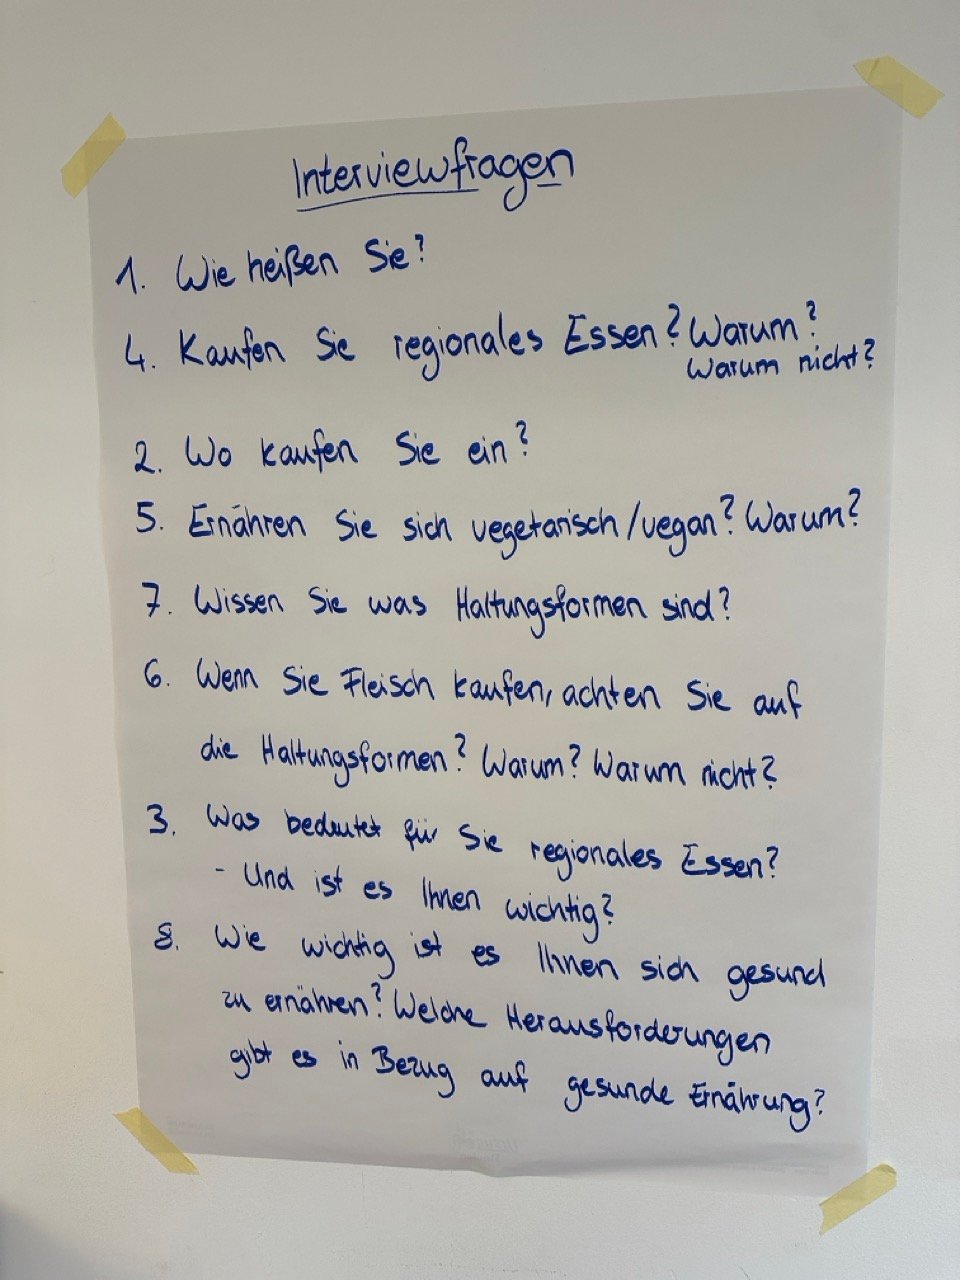 Interviewfragen
1. Wie heißen Sie?
4. Kaufen Sie regionales Essen? Warum?
Warum nicht?
2. Wo kaufen Sie ein?
5. Ernähren Sie sich vegetarisch/vegan? Warum?
7. Wissen Sie was Haltungsformen sind?
6. Wenn Sie Fleisch kaufen, achten Sie auf
die Haltungsformen? Warum? Warum nicht?
3. Was bedeutet für Sie regionales Essen?
- Und ist es Ihnen wichtig?
8. Wie wichtig ist es Ihnen sich gesund
zu ernähren? Welche Herausforderungen
gibt es in Bezug auf gesunde Ernährung?